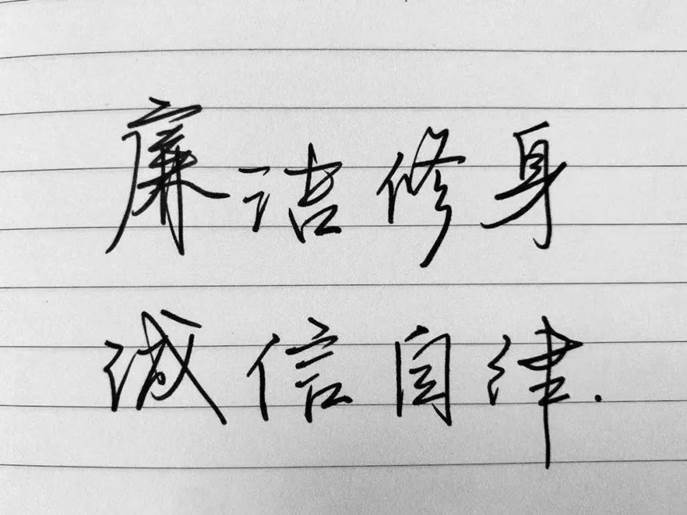 廉洁修身
诚信自律.